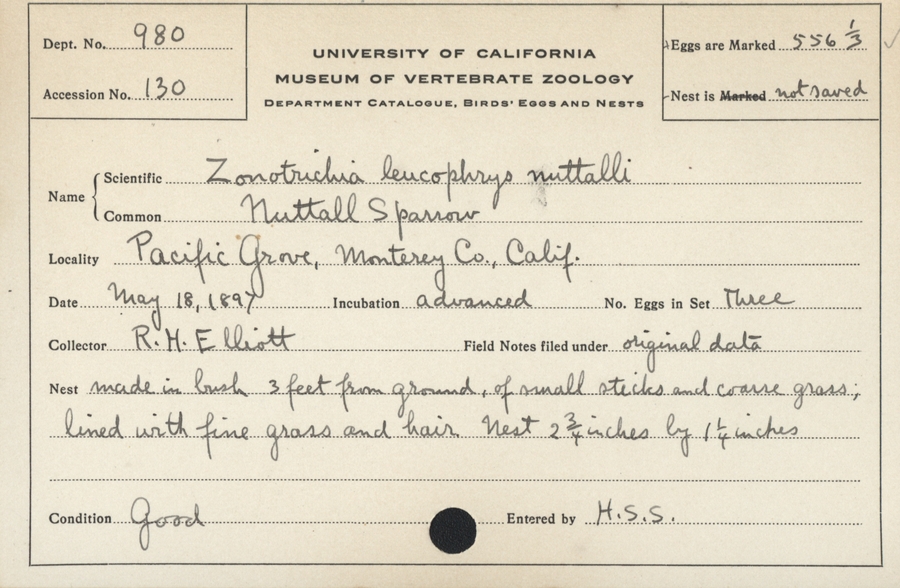 Dept. No. 980
Accession No. 130
UNIVERSITY OF CALIFORNIA
MUSEUM OF VERTEBRATE ZOOLOGY
DEPARTMENT CATALOGUE, BIRDS' EGGS AND NESTS
Eggs are Marked 556 1/3
Nest is Marked not saved
Name { Scientific Zonotrichia leucophrys nuttalli
Common Nuttall Sparrow
Locality Pacific Grove, Monterey Co., Calif.
Date May 18, 1897 Incubation advanced No. Eggs in Set Three
Collector R. H. Elliott Field Notes filed under original data
Nest made in bush 3 feet from ground, of small sticks and coarse grass;
lined with fine grass and hair. Nest 2 3/4 inches by 1 1/4 inches
Condition Good Entered by H.S.S.